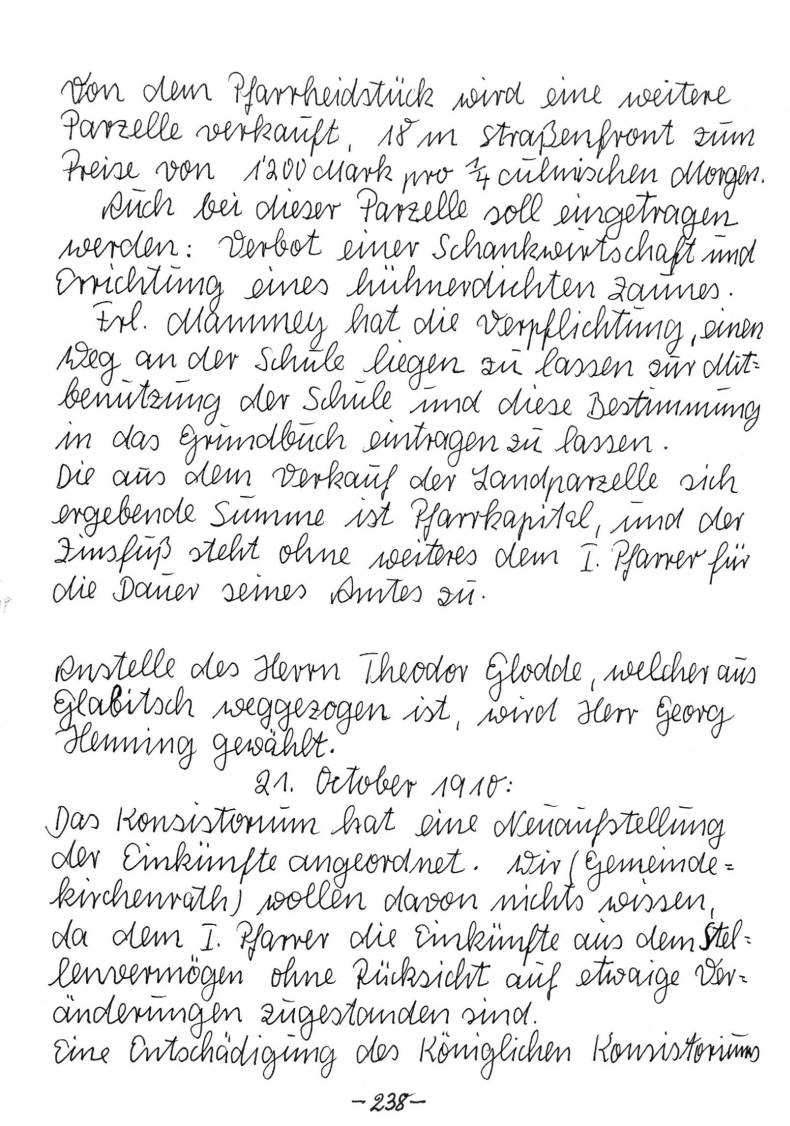 Von dem Pfarrheidstück wird eine weitere
Parzelle verkauft, 18 m Straßenfront zum
Preise von 1200 Mark pro ¼ culmischen Morgen.
Auch bei dieser Parzelle soll eingetragen
werden: Verbot einer Schankwirtschaft und
Errichtung eines hühnerdichten Zaunes.
Frl. Mammey hat die Verpflichtung, einen
Weg an der Schule liegen zu lassen zur Mit=
benutzung der Schule und diese Bestimmung
in das Grundbuch eintragen zu lassen.
Die aus dem Verkauf der Landparzelle sich
ergebende Summe ist Pfarrkapital, und der
Zinsfuß steht ohne weiteres dem I. Pfarrer für
die Dauer seines Amtes zu.
Anstelle des Herrn Theodor Glodde, welcher aus
Glabitsch weggezogen ist, wird Herr Georg
Henning gewählt.
21. October 1910:
Das Konsistorium hat eine Neuaufstellung
der Einkünfte angeordnet. Wir (Gemeinde=
kirchenrath) wollen davon nichts wissen,
da dem I. Pfarrer die Einkünfte aus dem Stel=
lenvermögen ohne Rücksicht auf etwaige Ver=
änderungen zugestanden sind.
Eine Entschädigung des Königlichen Konsistoriums
-238-